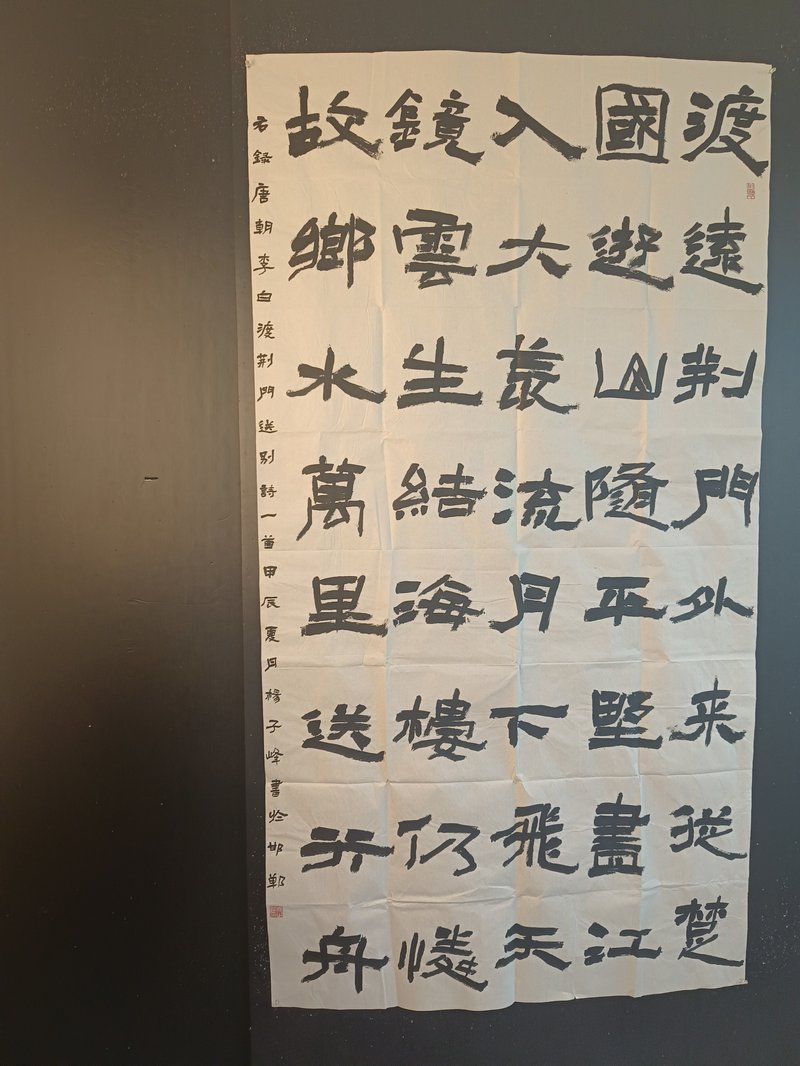 渡遠荆門外来從楚
國遊山隨平墅盡江
入大荒流月下飛天
鏡雲生結海樓仍憐
故鄉水萬里送行舟
右録唐朝李白渡荆門送别詩一首甲辰夏月楊子峰書於邯鄲